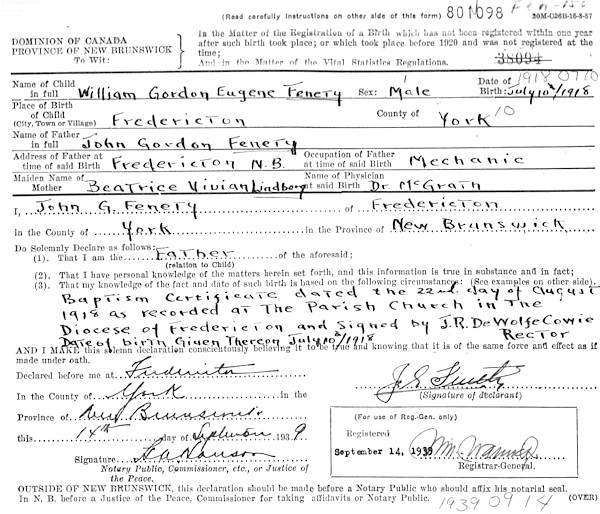 (Read carefully instructions on other side of this form) 801098
20M-C26B-16-8-37
DOMINION OF CANADA
PROVINCE OF NEW BRUNSWICK
To Wit:
In the Matter of the Registration of a Birth which has not been registered within one year
after such birth took place; or which took place before 1920 and was not registered at the
time;
And in the Matter of the Vital Statistics Regulations.
38094
Name of Child in full William Gordon Eugene Fenety Sex: Male Date of Birth: July 10th/1918
19180710
Place of Birth of Child (City, Town or Village) Fredericton County of York 10
Name of Father in full John Gordon Fenety
Address of Father at time of said Birth Fredericton N.B. Occupation of Father at time of said Birth Mechanic
Maiden Name of Mother Beatrice Vivian Lindberg Name of Physician at said Birth Dr. McGrath
I, John G. Fenety of Fredericton
in the County of York in the Province of New Brunswick
Do Solemnly Declare as follows:
(1). That I am the Father of the aforesaid;
(relation to Child)
(2). That I have personal knowledge of the matters herein set forth, and this information is true in substance and in fact;
(3). That my knowledge of the fact and date of such birth is based on the following circumstances: (See examples on other side).
Baptism Certificate dated the 22nd day of August
1918 as recorded at The Parish Church in The
Diocese of Fredericton and Signed by J.R. DeWolfe Cowie
Rector
Date of birth Given Thereon July 10th/1918
AND I MAKE this solemn declaration conscientiously believing it to be true and knowing that it is of the same force and effect as if
made under oath.
Declared before me at Fredericton
In the County of York in the
Province of New Brunswick
this 14th day of September 1939
Signature
Notary Public, Commissioner, etc., or Justice of
the Peace.
J G Fenety
(Signature of declarant)
(For use of Reg.-Gen. only)
Registered
September 14, 1939
Registrar-General.
OUTSIDE OF NEW BRUNSWICK, this declaration should be made before a Notary Public who should affix his notarial seal.
In N. B. before a Justice of the Peace, Commissioner for taking affidavits or Notary Public. (OVER)
19390914